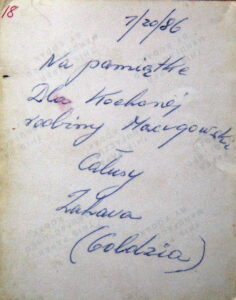 18
1/20/86
Na pamiątkę
Dla Kochanej
rodziny
Całusy
Zahava
(Goldzia)